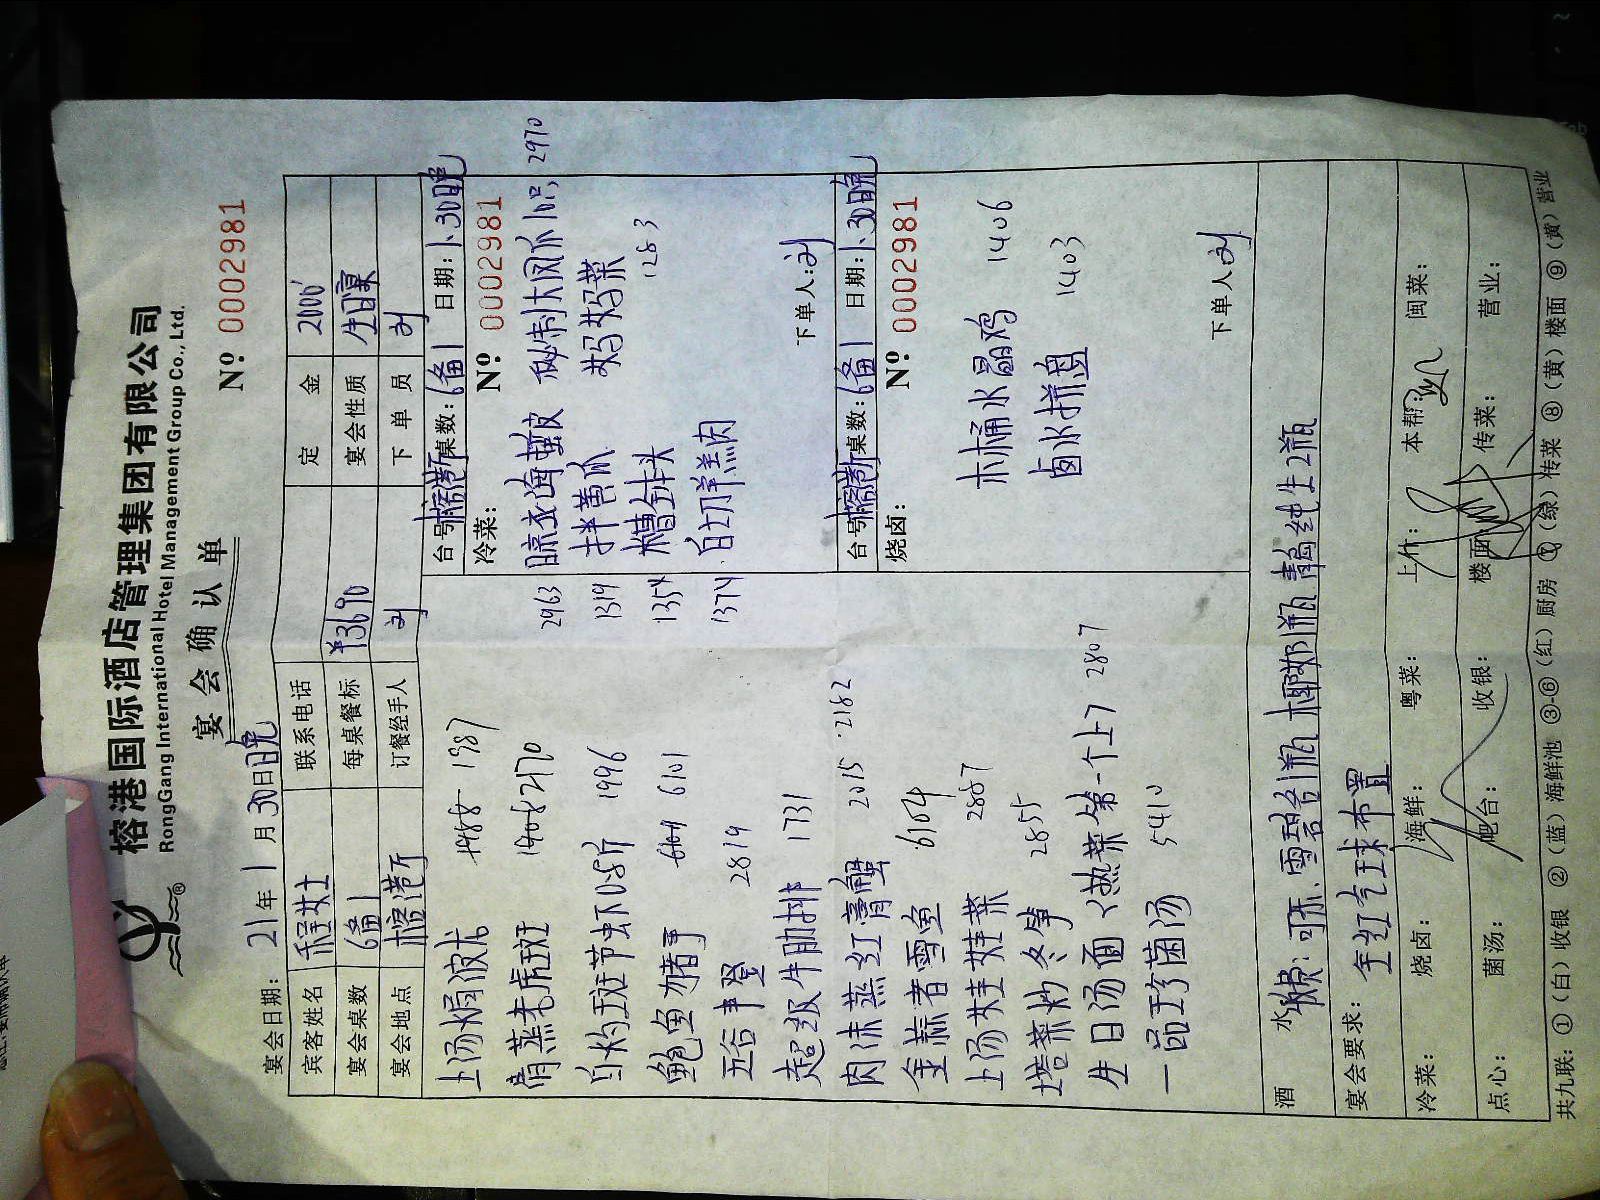 榕港国际酒店管理集团有限公司
RongGang International Hotel Management Group Co., Ltd.
宴会确认单
Nº 0002981
宴会日期: 21年1月30日晚
宾客姓名 程女士 联系电话 定金 2000
宴会桌数 6备1 每桌餐标 ¥3690 宴会性质 生日宴
宴会地点 榕港新 订餐经手人 刘 下单员 刘
上汤焗波龙 1987
清蒸老虎斑 2170
白灼斑节虾0.8斤 1996
鲍鱼猪事 6101
五谷丰登 2819
超级牛肋排 1731
肉沫蒸红膏蟹 2015 2182
金蒜者雪鱼 6104
上汤娃娃菜 2887
塔菜炒冬笋 2855
生日汤面(热菜第一个上) 2807
一品珍菌汤 5410
台号 榕港新 桌数: 6备1 日期: 1.30日晚
冷菜: Nº 0002981
2963 晾衣海蜇皮 秘制大凤爪10只 2970
1319 拌黄瓜 妈妈菜 1283
1354 糟钟头
1374 白切羊羔肉
下单人: 刘
台号 榕港新 桌数: 6备1 日期: 1.30日晚
烧卤: Nº 0002981
木桶水晶鸡 1406
卤水拼盘 1403
下单人: 刘
酒水 可乐、雪碧各1瓶 椰奶1瓶 纯生2瓶
宴会要求: 全红气球布置
冷菜: 烧卤: 海鲜: 粤菜: 上什: 本帮: 闽菜:
点心: 菌汤: 吧台: 收银: 楼面: 传菜: 营业:
共九联: ①(白)收银 ②(蓝)海鲜池 ③-⑥(红)厨房 ⑦(绿)传菜 ⑧(黄)楼面 ⑨(黄)营业